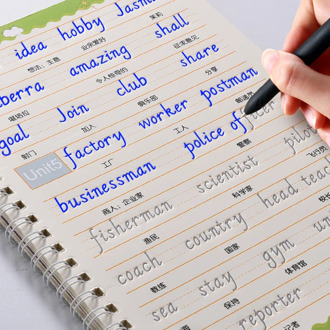 idea hobby Jasmi
想法;主意 业余爱好 茉莉
berra amazing shall
堪培拉 令人惊奇的 征求意见
goal Join club share
射门 加入 俱乐部 分享
Unit5 factory worker postman
工厂 工人 邮递员
businessman police officer
商人;企业家 警察
fisherman scientist pilot
渔民 科学家 飞行员
coach country head teac
教练 国家
sea stay gym un
保持 体育馆
reporter
记者